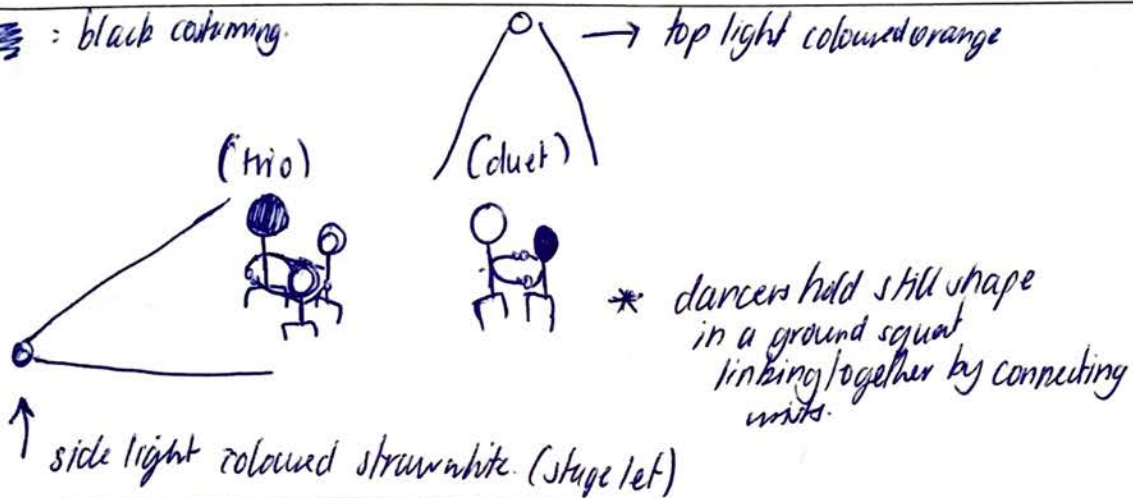 : black costuming.
→ top light coloured orange
(trio)
(duet)
* dancers hold still shape
in a ground squat
linking together by connecting
wrists.
↑ side light coloured straw white. (stage let)